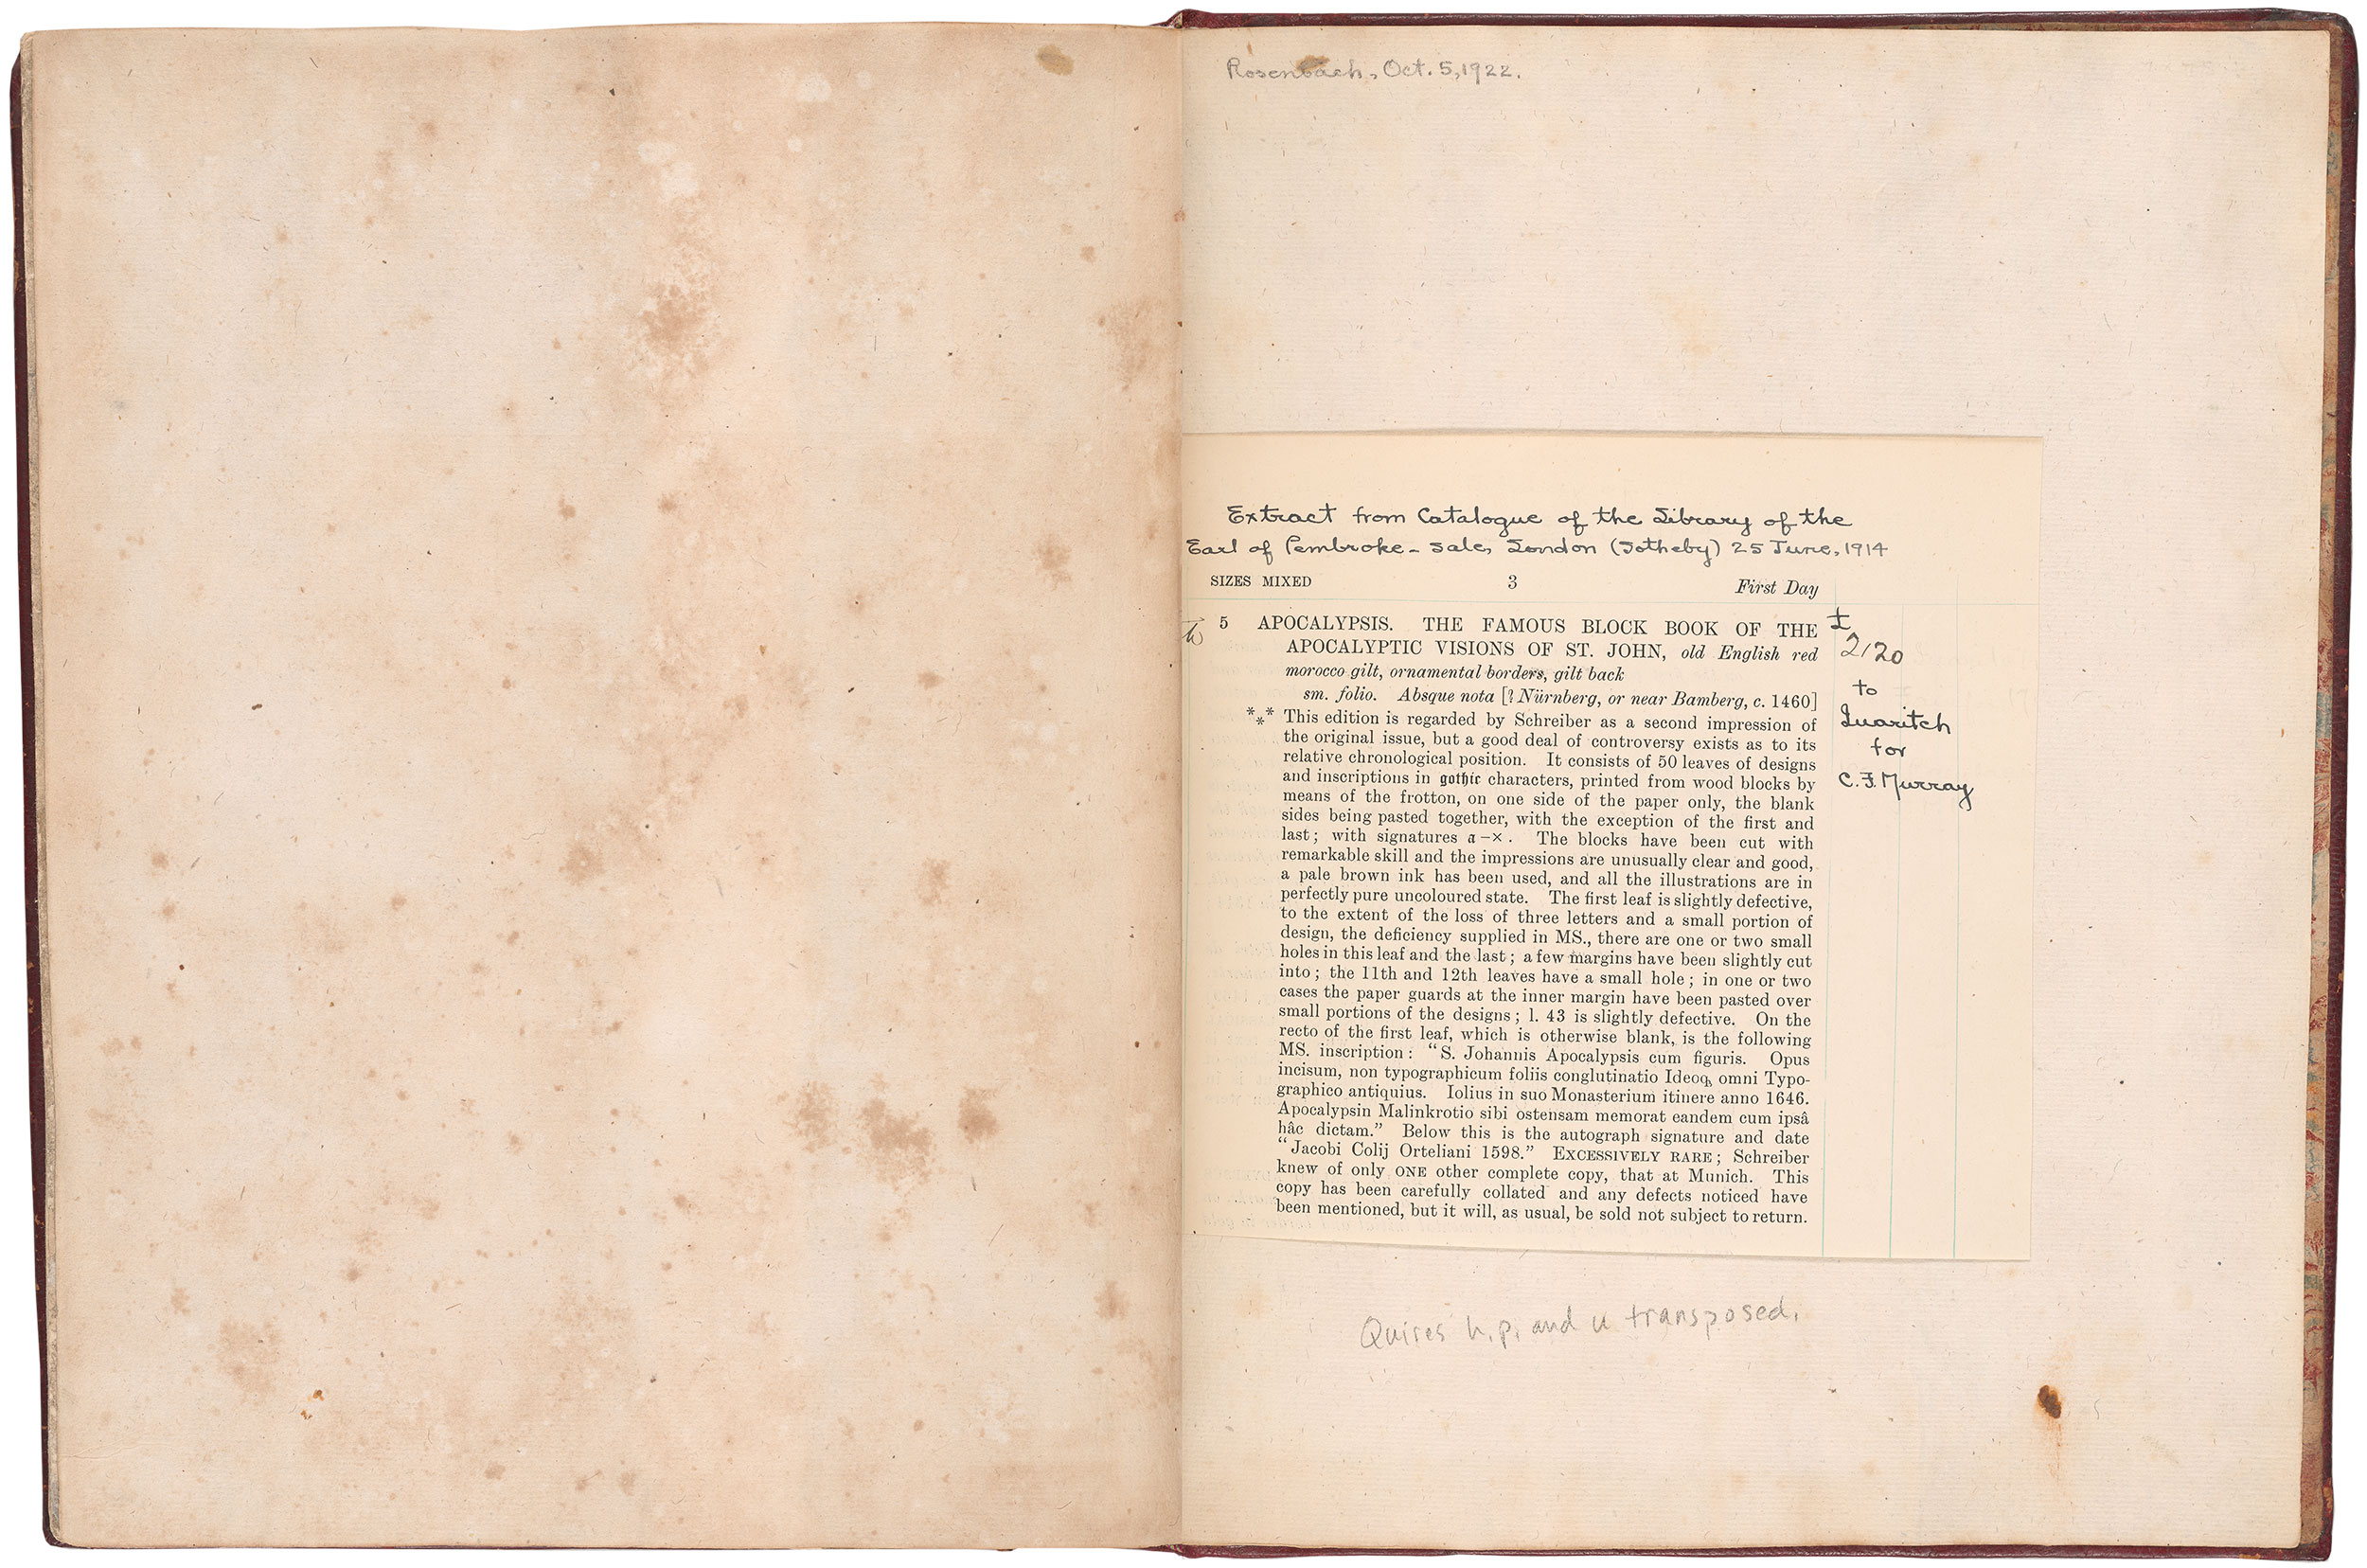 Rosenbach, Oct. 5, 1922.
Extract from Catalogue of the Library of the
Earl of Pembroke - sale, London (Sotheby) 25 June, 1914
SIZES MIXED 3 First Day
5 APOCALYPSIS. THE FAMOUS BLOCK BOOK OF THE
APOCALYPTIC VISIONS OF ST. JOHN, old English red
morocco gilt, ornamental borders, gilt back
sm. folio. Absque nota [? Nürnberg, or near Bamberg, c. 1460]
*⁎* This edition is regarded by Schreiber as a second impression of
the original issue, but a good deal of controversy exists as to its
relative chronological position. It consists of 50 leaves of designs
and inscriptions in gothic characters, printed from wood blocks by
means of the frotton, on one side of the paper only, the blank
sides being pasted together, with the exception of the first and
last; with signatures a–×. The blocks have been cut with
remarkable skill and the impressions are unusually clear and good,
a pale brown ink has been used, and all the illustrations are in
perfectly pure uncoloured state. The first leaf is slightly defective,
to the extent of the loss of three letters and a small portion of
design, the deficiency supplied in MS., there are one or two small
holes in this leaf and the last; a few margins have been slightly cut
into; the 11th and 12th leaves have a small hole; in one or two
cases the paper guards at the inner margin have been pasted over
small portions of the designs; l. 43 is slightly defective. On the
recto of the first leaf, which is otherwise blank, is the following
MS. inscription: "S. Johannis Apocalypsis cum figuris. Opus
incisum, non typographicum foliis conglutinatio Ideoqꝫ omni Typo-
graphico antiquius. Iolius in suo Monasterium itinere anno 1646.
Apocalypsin Malinkrotio sibi ostensam memorat eandem cum ipsâ
hâc dictam." Below this is the autograph signature and date
"Jacobi Colij Orteliani 1598." EXCESSIVELY RARE; Schreiber
knew of only ONE other complete copy, that at Munich. This
copy has been carefully collated and any defects noticed have
been mentioned, but it will, as usual, be sold not subject to return.
£
2120
to
Quaritch
for
C. F. Murray
Quires h, p, and u transposed.